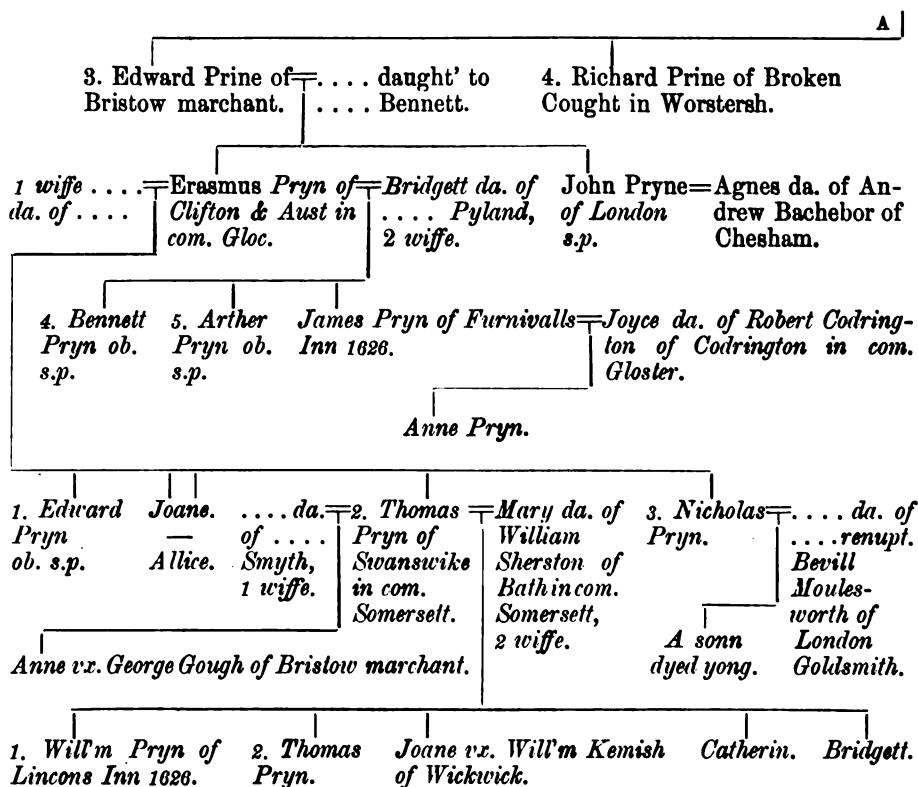 A
3. Edward Prine of . . . . daught' to
Bristow marchant. . . . . Bennett.
4. Richard Prine of Broken
Cought in Worstersh.
1 wiffe . . . .
da. of . . . .
Erasmus Pryn of
Clifton & Aust in
com. Gloc.
Bridgett da. of
. . . . Pyland,
2 wiffe.
John Pryne
of London
s.p.
Agnes da. of An-
drew Bachebor of
Chesham.
4. Bennett
Pryn ob.
s.p.
5. Arther
Pryn ob.
s.p.
James Pryn of Furnivalls
Inn 1626.
Joyce da. of Robert Codring-
ton of Codrington in com.
Gloster.
Anne Pryn.
1. Edward
Pryn
ob. s.p.
Joane.
—
Allice.
. . . . da.
of . . . .
Smyth,
1 wiffe.
2. Thomas
Pryn of
Swanswike
in com.
Somersett.
Mary da. of
William
Sherston of
Bath in com.
Somersett,
2 wiffe.
3. Nicholas
Pryn.
. . . . da. of
. . . . renupt.
Bevill
Moules-
worth of
London
Goldsmith.
A sonn
dyed yong.
Anne vx. George Gough of Bristow marchant.
1. Will'm Pryn of
Lincons Inn 1626.
2. Thomas
Pryn.
Joane vx. Will'm Kemish
of Wickwick.
Catherin.
Bridgett.